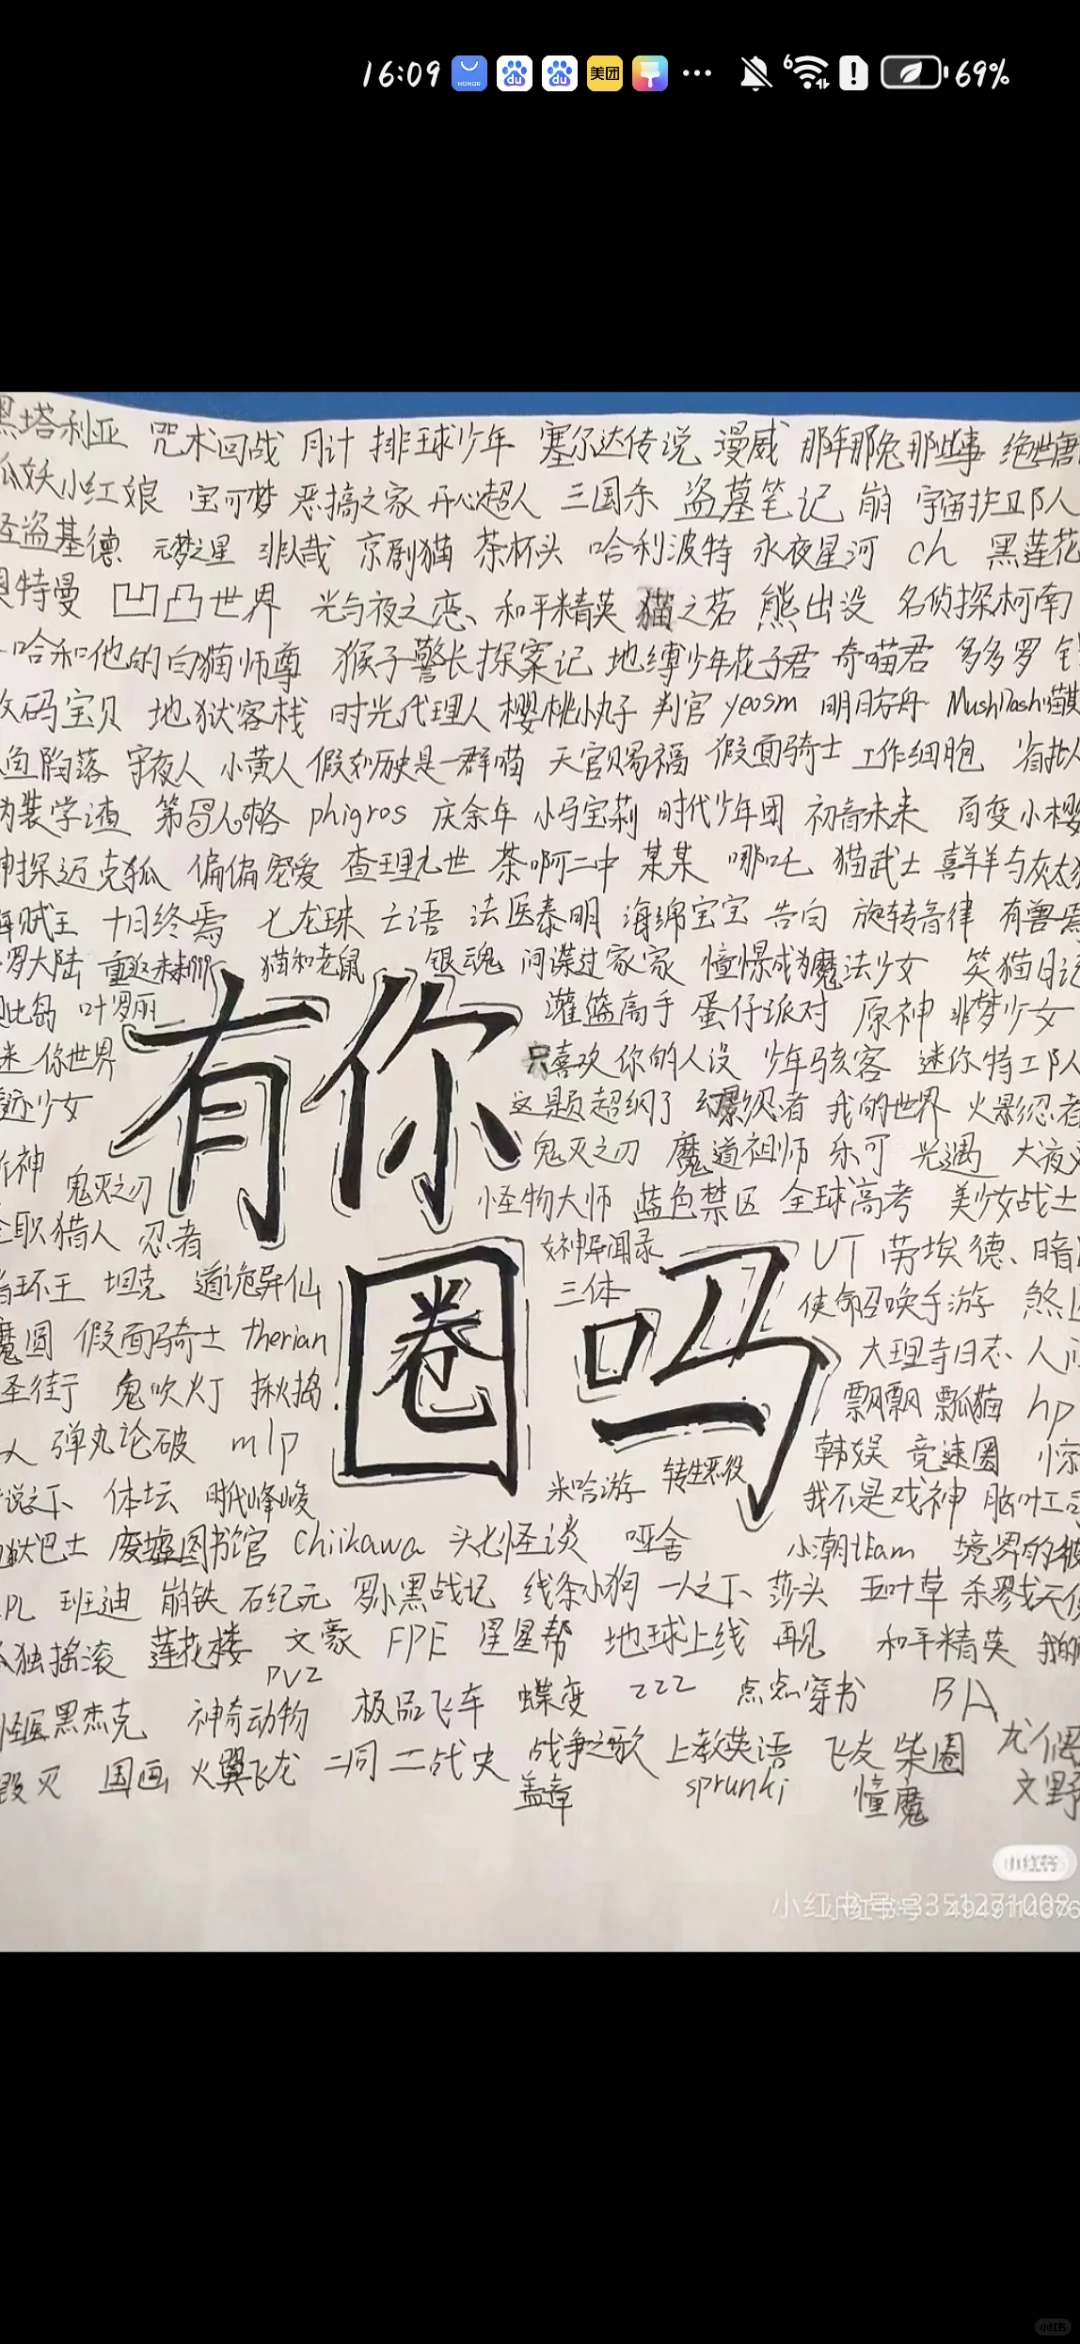 16:09 HONOR du du 美团 69%
黑塔利亚 咒术回战 月计 排球少年 塞尔达传说 漫威 那年那兔那些事 绝世唐
狐妖小红娘 宝可梦 恶搞之家 开心超人 三国杀 盗墓笔记 崩 宇宙护卫队
怪盗基德 元梦之星 非人哉 京剧猫 茶杯头 哈利波特 永夜星河 ch 黑莲花
奥特曼 凹凸世界 光与夜之恋、和平精英 猫之茗 熊出没 名侦探柯南
哈和他的白猫师尊 猴子警长探案记 地缚少年花子君 奇喵君 多多罗
数码宝贝 地狱客栈 时光代理人 樱桃小丸子 判官 yeosm 明日方舟 MushDash喵
鱼陷落 守夜人 小黄人 假如历史是一群喵 天官赐福 假面骑士 工作细胞
伪装学渣 第五人格 phigros 庆余年 小马宝莉 时代少年团 初音未来 百变小樱
神探迈克狐 偏偏宠爱 查理九世 茶啊二中 某某 哪吒 猫武士 喜羊羊与灰太狼
赋王 十日终焉 七龙珠 亡语 法医秦明 海绵宝宝 告白 旋转音律 有兽焉
罗大陆 重返未来 猫和老鼠 银魂 间谍过家家 憧憬成为魔法少女 笑猫日记
比岛 叶罗丽 灌篮高手 蛋仔派对 原神 非梦少女
迷你世界 只喜欢你的人设 少年骇客 迷你特工队
迹少女 这题超纲了 忍者 我的世界 火影忍者
有你
神 鬼灭之刃 鬼灭之刃 魔道祖师 乐可 光遇 大夜
全职猎人 忍者 怪物大师 蓝色禁区 全球高考 美少女战士
女神异闻录 UT 劳埃德、暗
指环王 坦克 道诡异仙 三体 使命召唤手游 煞
魔圆 假面骑士 therian 大理寺日志 人
圈吗
圣街 鬼吹灯 揪搗 飘飘 瓢猫 hp
人 弹丸论破 mlp 韩娱 竞速圈 惊
传说之下 体坛 时代峰峻 米哈游 转生恶役 我不是戏神 脑叶
地狱巴士 废墟图书馆 Chiikawa 头七怪谈 哑舍 小潮team 境界的彼
PL 班迪 崩铁 石纪元 罗小黑战记 线条小狗 一人之下 莎头 五叶草 杀戮天使
孤独摇滚 莲花楼 文豪 FPE 星星帮 地球上线 再见 和平精英 我的
PVZ
怪医黑杰克 神奇动物 极品飞车 蝶变 zzz 点点穿书 BA
毁灭 国画 火翼飞龙 二同 二战史 战争之歌 上教英语 飞友 柴圈 尤
盖章 sprunki 憧魔 文野
小红书
小红书号